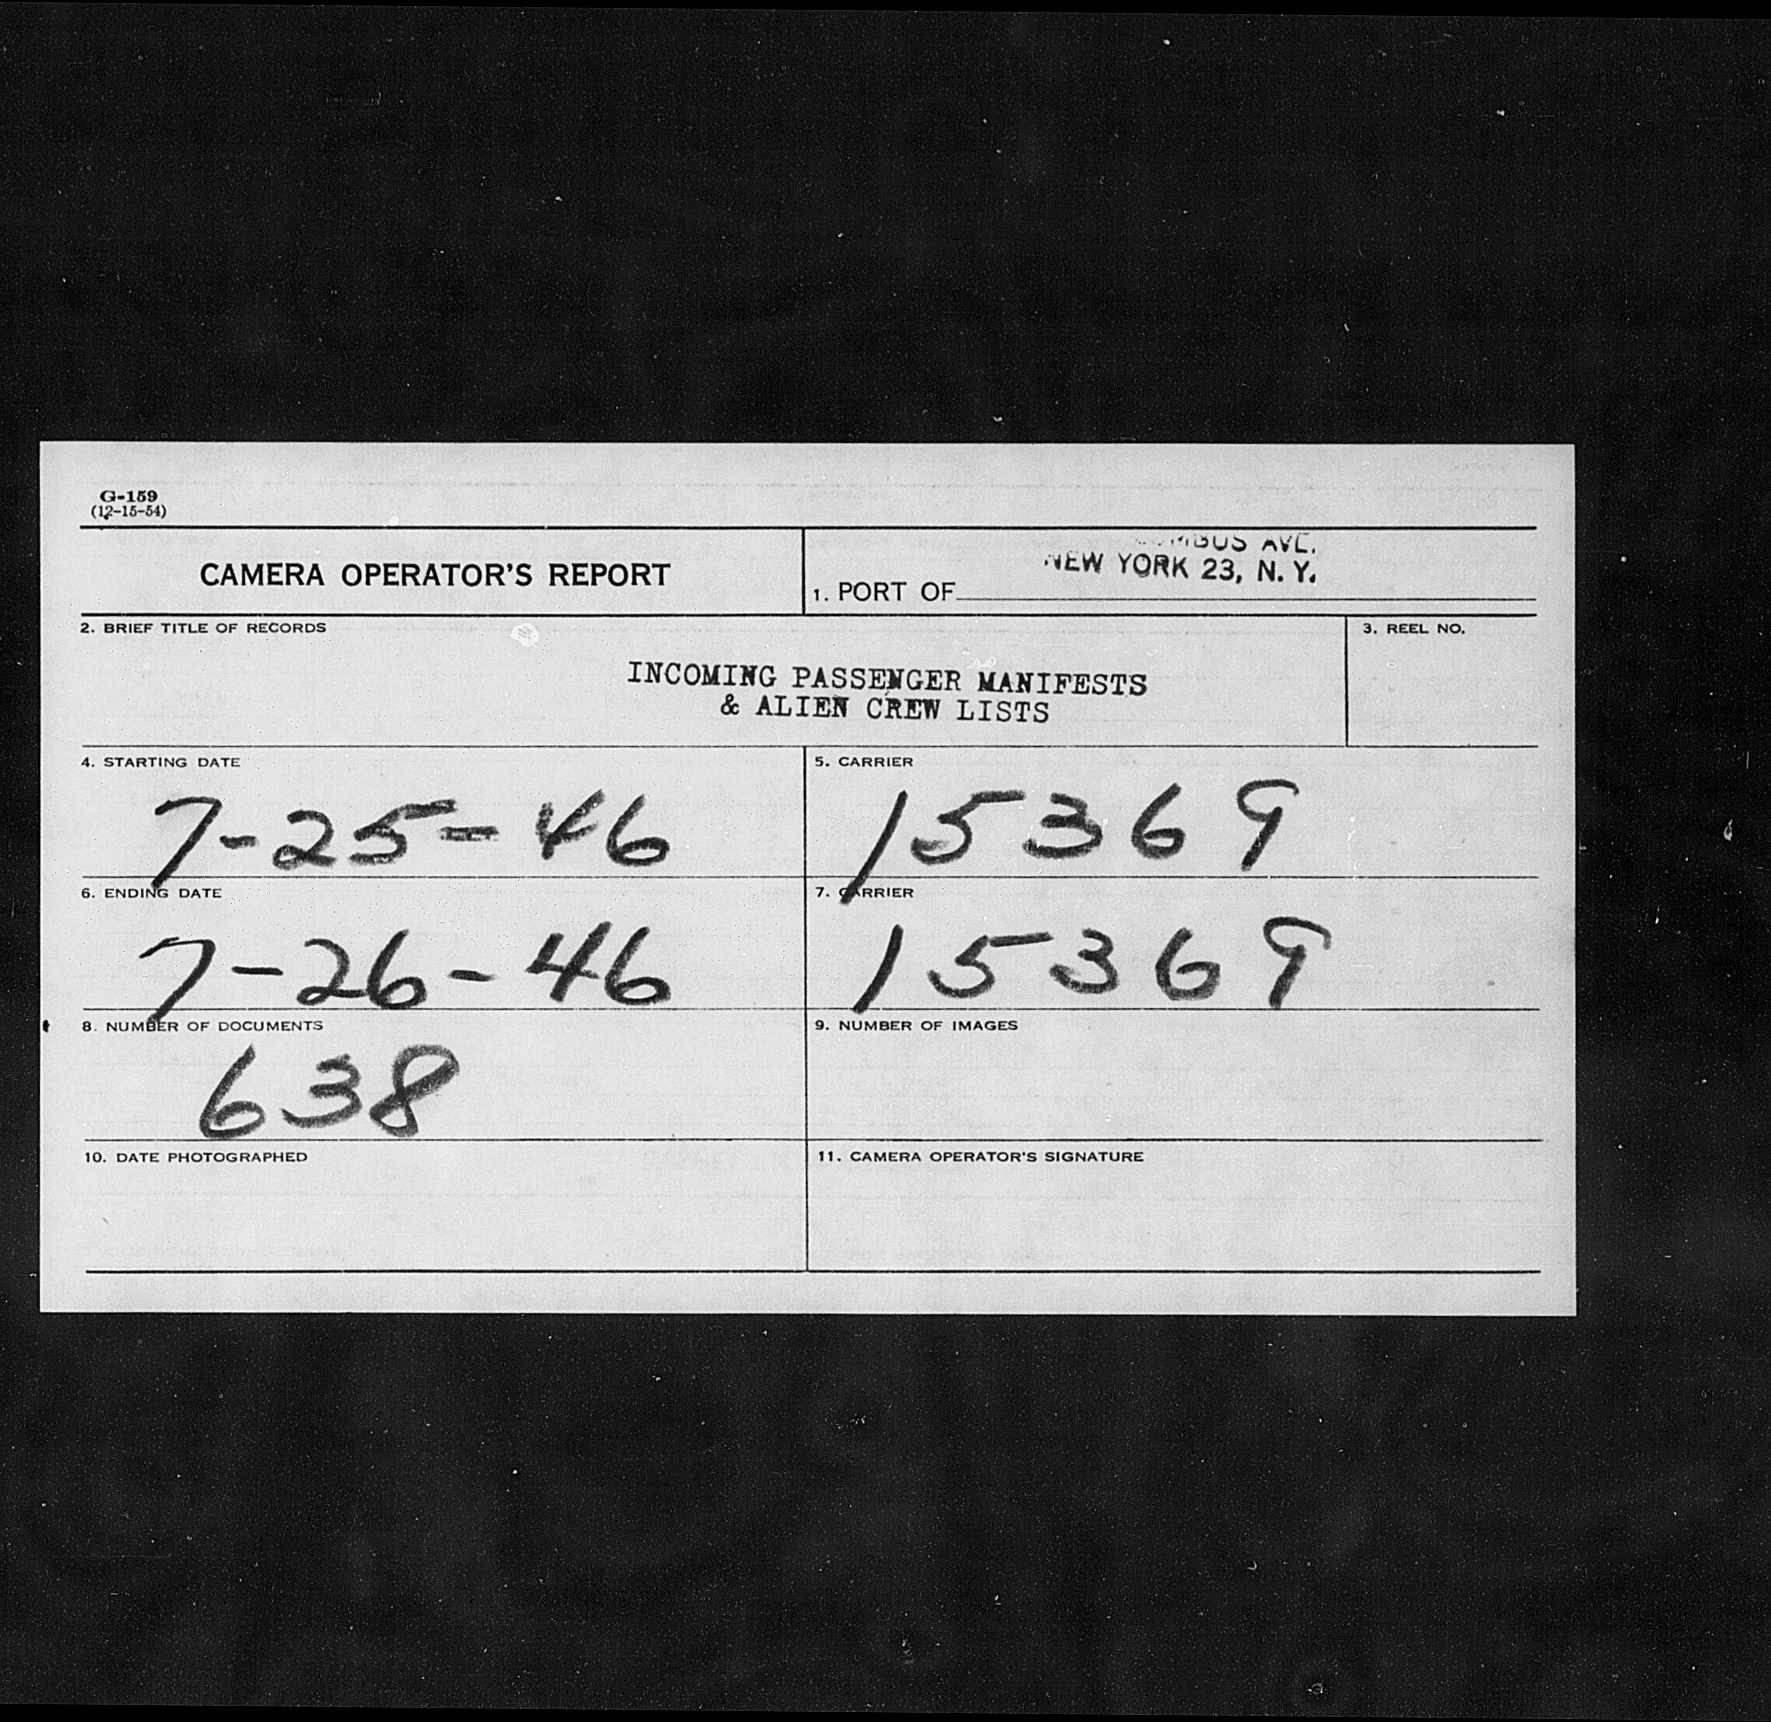 G-159
(12-15-54)
CAMERA OPERATOR'S REPORT
AVE.
NEW YORK 23, N. Y.
1. PORT OF
2. BRIEF TITLE OF RECORDS
3. REEL NO.
INCOMING PASSENGER MANIFESTS
& ALIEN CREW LISTS
4. STARTING DATE
7-25-46
5. CARRIER
15369
6. ENDING DATE
7-26-46
7. CARRIER
15369
8. NUMBER OF DOCUMENTS
638
9. NUMBER OF IMAGES
10. DATE PHOTOGRAPHED
11. CAMERA OPERATOR'S SIGNATURE